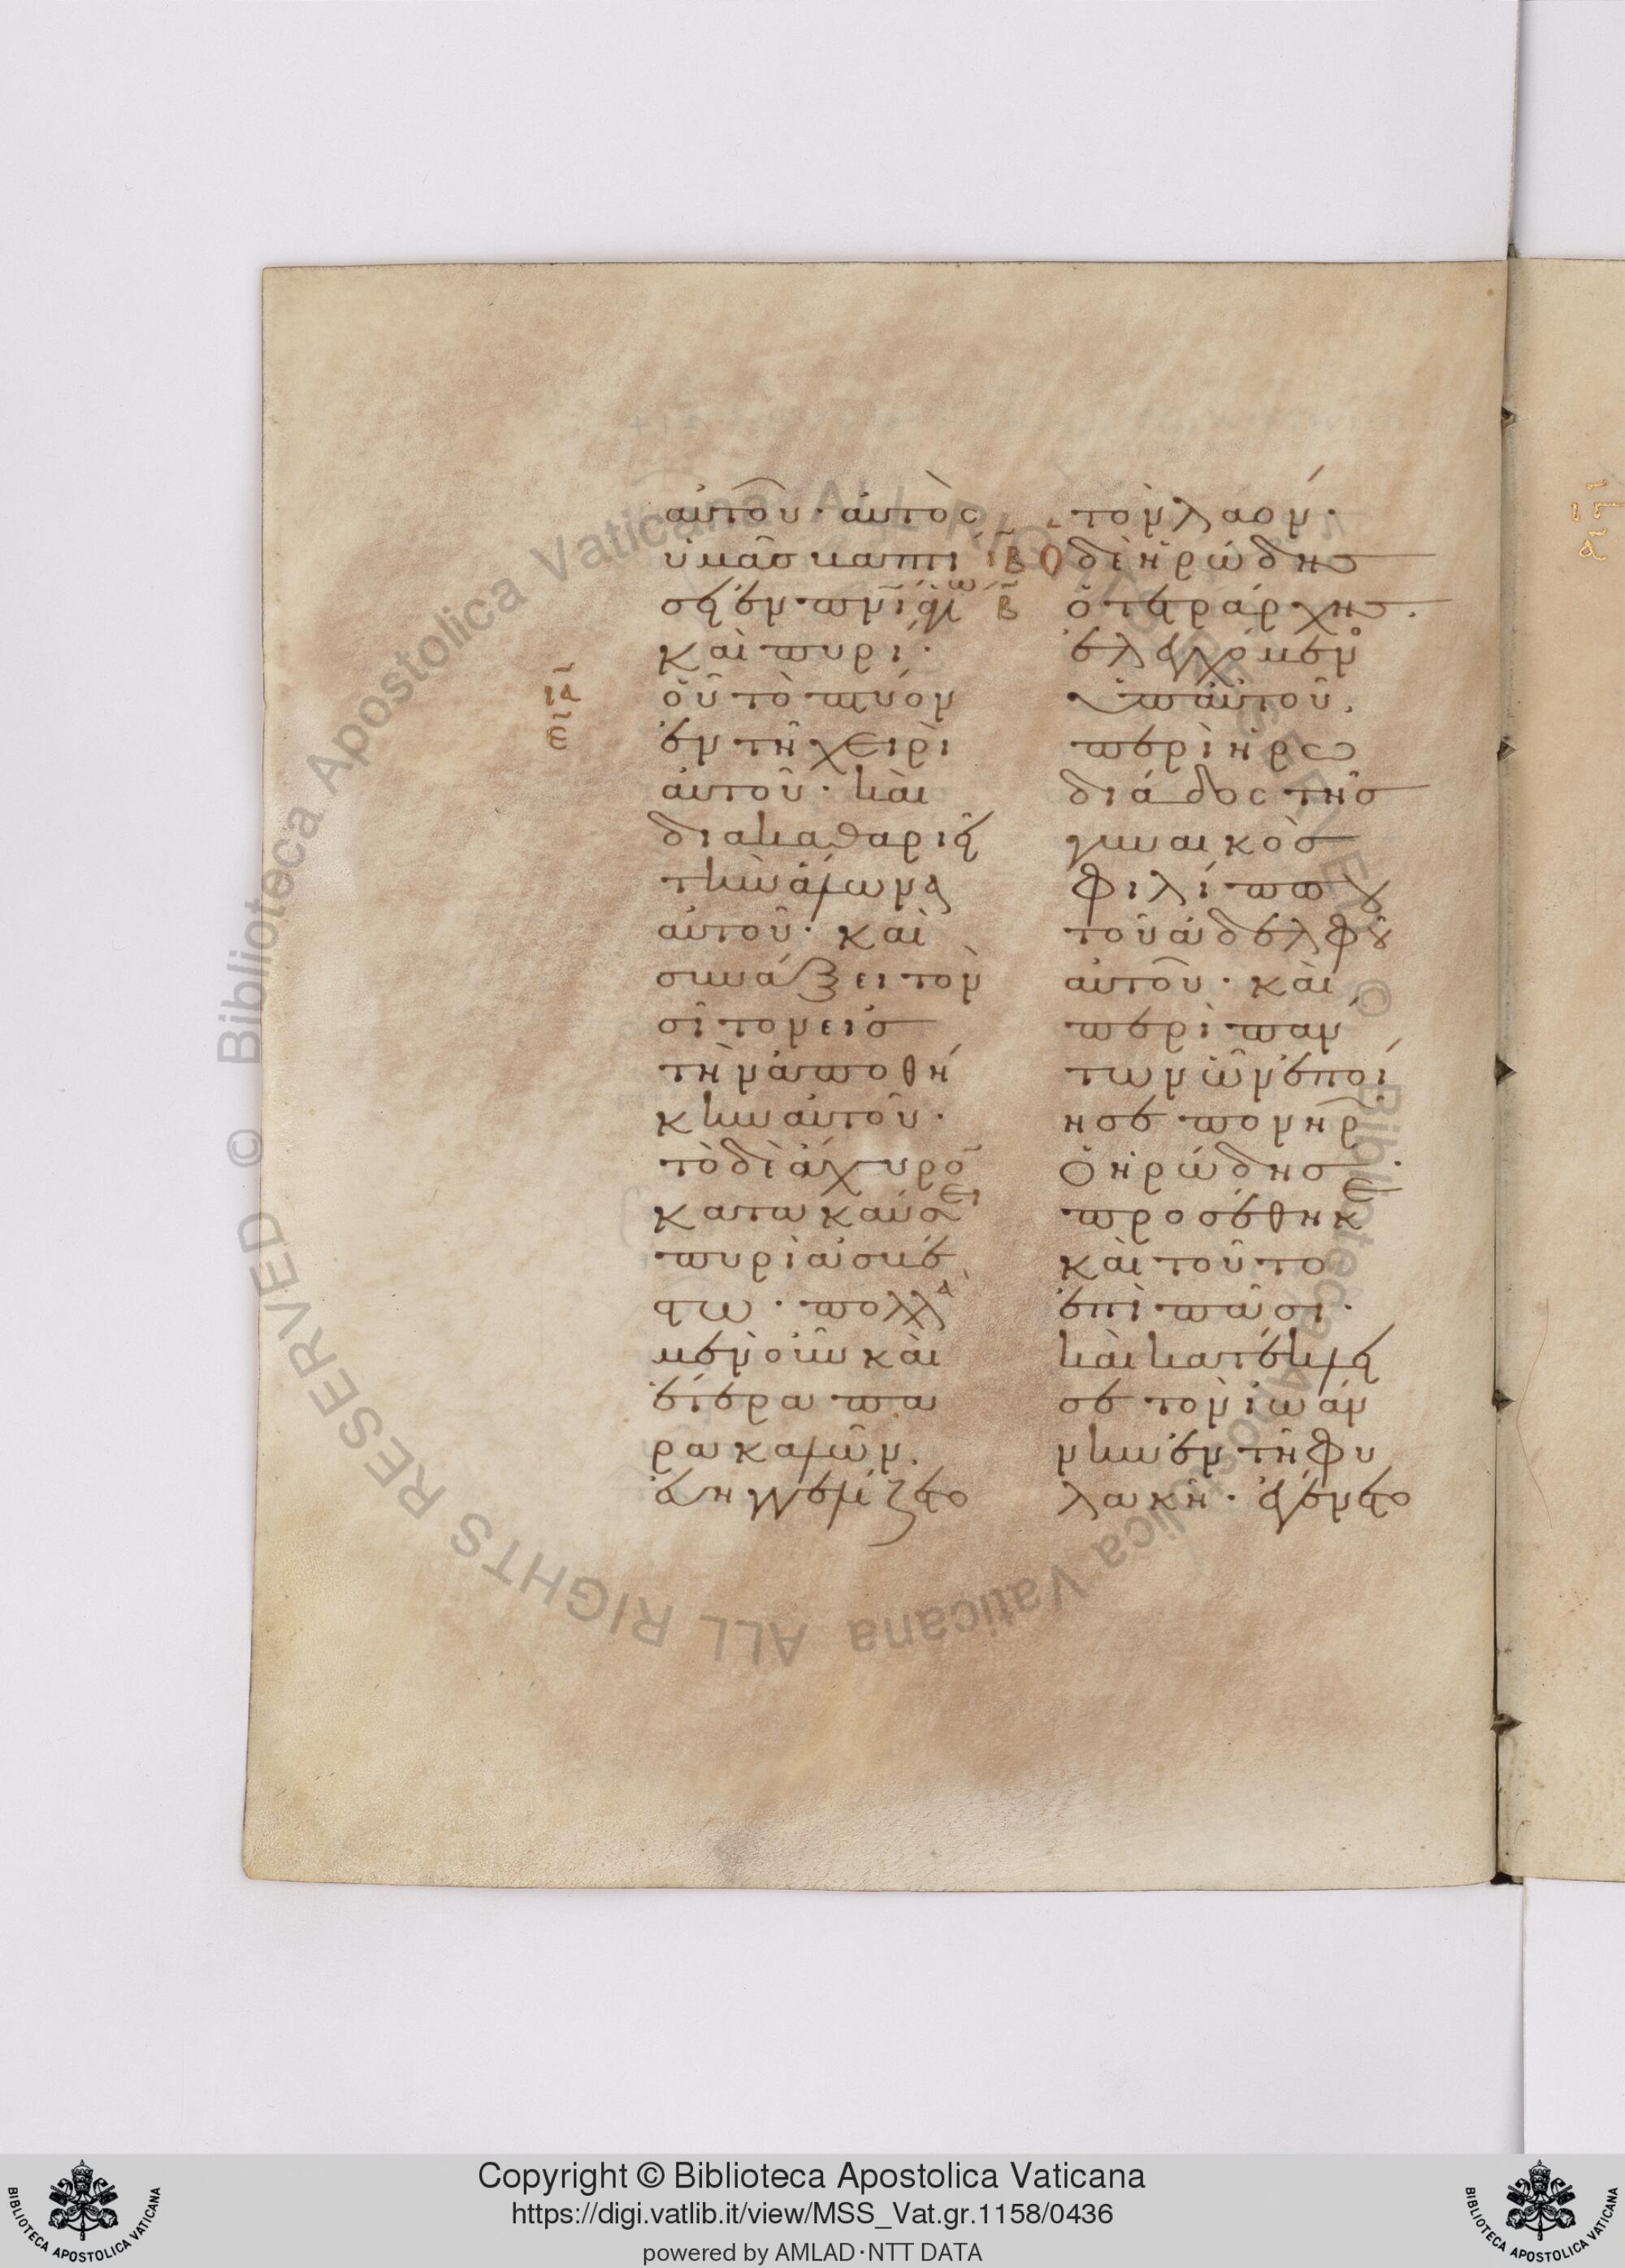 αὐτοῦ· αὐτὸς
ὑμᾶσ βαπτι
σει ἐν πνι ἁγίω
καὶ πυρί·
οὗ τὸ πτύον
ἐν τῆ χειρὶ
αὐτοῦ· καὶ
διακαθαριεῖ
τὴν ἅλωνα
αὐτοῦ· καὶ
συνάξει τὸν
σῖτον εἰσ
τὴν ἀποθή
κην αὐτοῦ·
τὸ δὲ ἄχυρο̄
κατακαύσει
πυρὶ ἀσβέ
στω· πολλὰ
μὲν οὖν καὶ
ἕτερα πα
ρακαλῶν.
εὐηγγελίζετο
ια
ε
ιβ
β
τὸν λαόν·
Ὁ δὲ ἡρώδησ
ὁ τετράρχησ.
ἐλεγχόμενο
ὑπ αὐτοῦ.
περὶ ἡρω
διάδος τῆσ
γυναικὸσ
φιλίππου
τοῦ ἀδελφοῦ
αὐτοῦ· καὶ
περὶ πάν
των ὧν ἐποί
ησε πονηρῶ
ὁ ἡρώδησ·
προσέθηκε
καὶ τοῦτο
ἐπὶ πᾶσι·
καὶ κατέκλει
σε τὸν ἰωάν
νην ἐν τῆ φυ
λακῆ· ἐγένετο
Copyright © Biblioteca Apostolica Vaticana
https://digi.vatlib.it/view/MSS_Vat.gr.1158/0436
powered by AMLAD·NTT DATA
BIBLIOTECA APOSTOLICA VATICANA
BIBLIOTECA APOSTOLICA VATICANA
© Biblioteca Apostolica Vaticana ALL RIGHTS RESERVED © Biblioteca Apostolica Vaticana ALL RIGHTS RESERVED